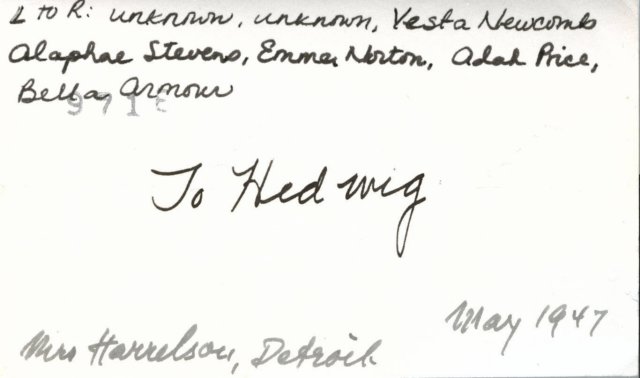 L to R: unknown, unknown, Vesta Newcomb
Alaphae Stevens, Emma Norton, Adah Price,
Bella Armour
To Hedwig
May 1947
Mrs Harrelson, Detroit